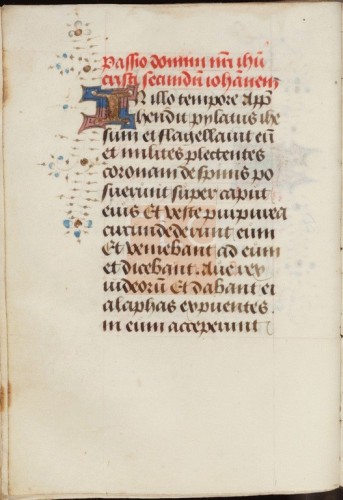 Passio domini nr̄i ihū
cristi secundū iohānem
In illo tempore App
hendit pylatus ihe
sum et flagellauit eū
et milites plectentes
coronam de spinis po
suerunt super caput
eius Et veste purpurea
circumdederunt eum
Et veniebant ad eum
et dicebant. Aue rex
iudeorū Et dabant ei
alaphas expuentes
in eum acceperunt